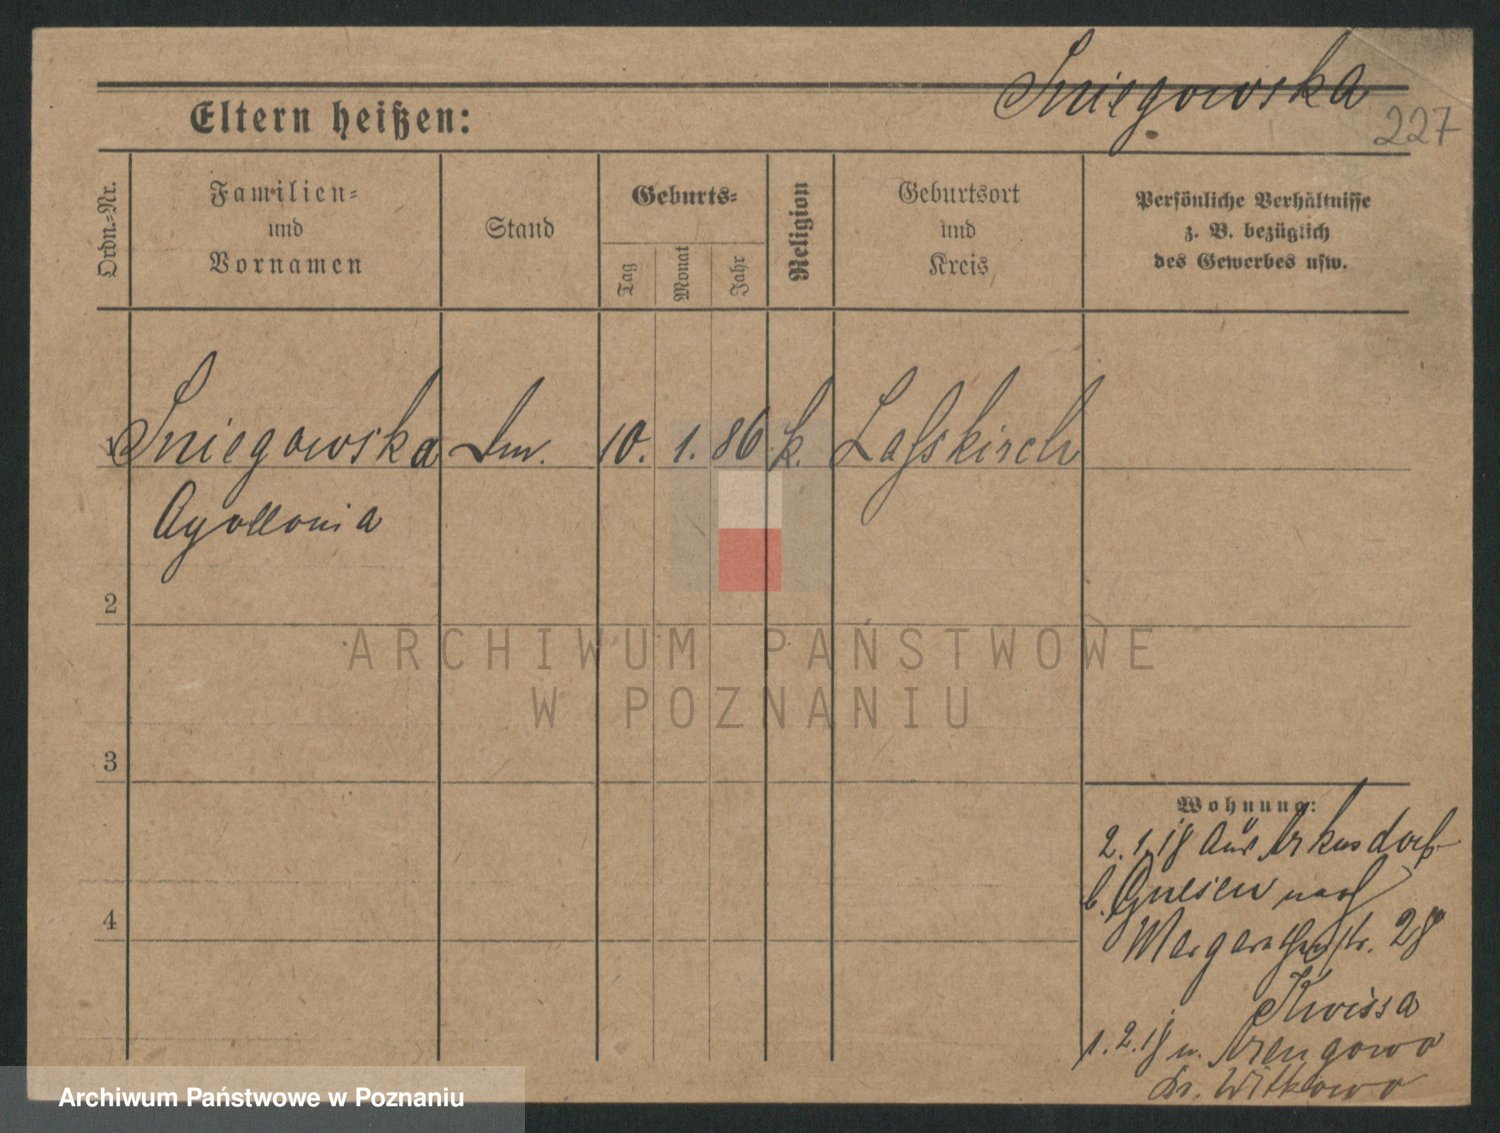 Sniegowska
227
Eltern heißen:
Ordn.-Nr.
Familien-
und
Vornamen
Stand
Geburts-
Tag
Monat
Jahr
Religion
Geburtsort
und
Kreis
Persönliche Verhältnisse
z. B. bezüglich
des Gewerbes usw.
1 Sniegowska 10. 1. 86 k. Lasskirch
Apollonia
2
3
4
Wohnung:
2.1.18 aus
b. Gnesen nach
Margarethenstr. 28
Kwissa
1.2.18 n.
Kr. Witkowo
ARCHIWUM PAŃSTWOWE
W POZNANIU
Archiwum Państwowe w Poznaniu